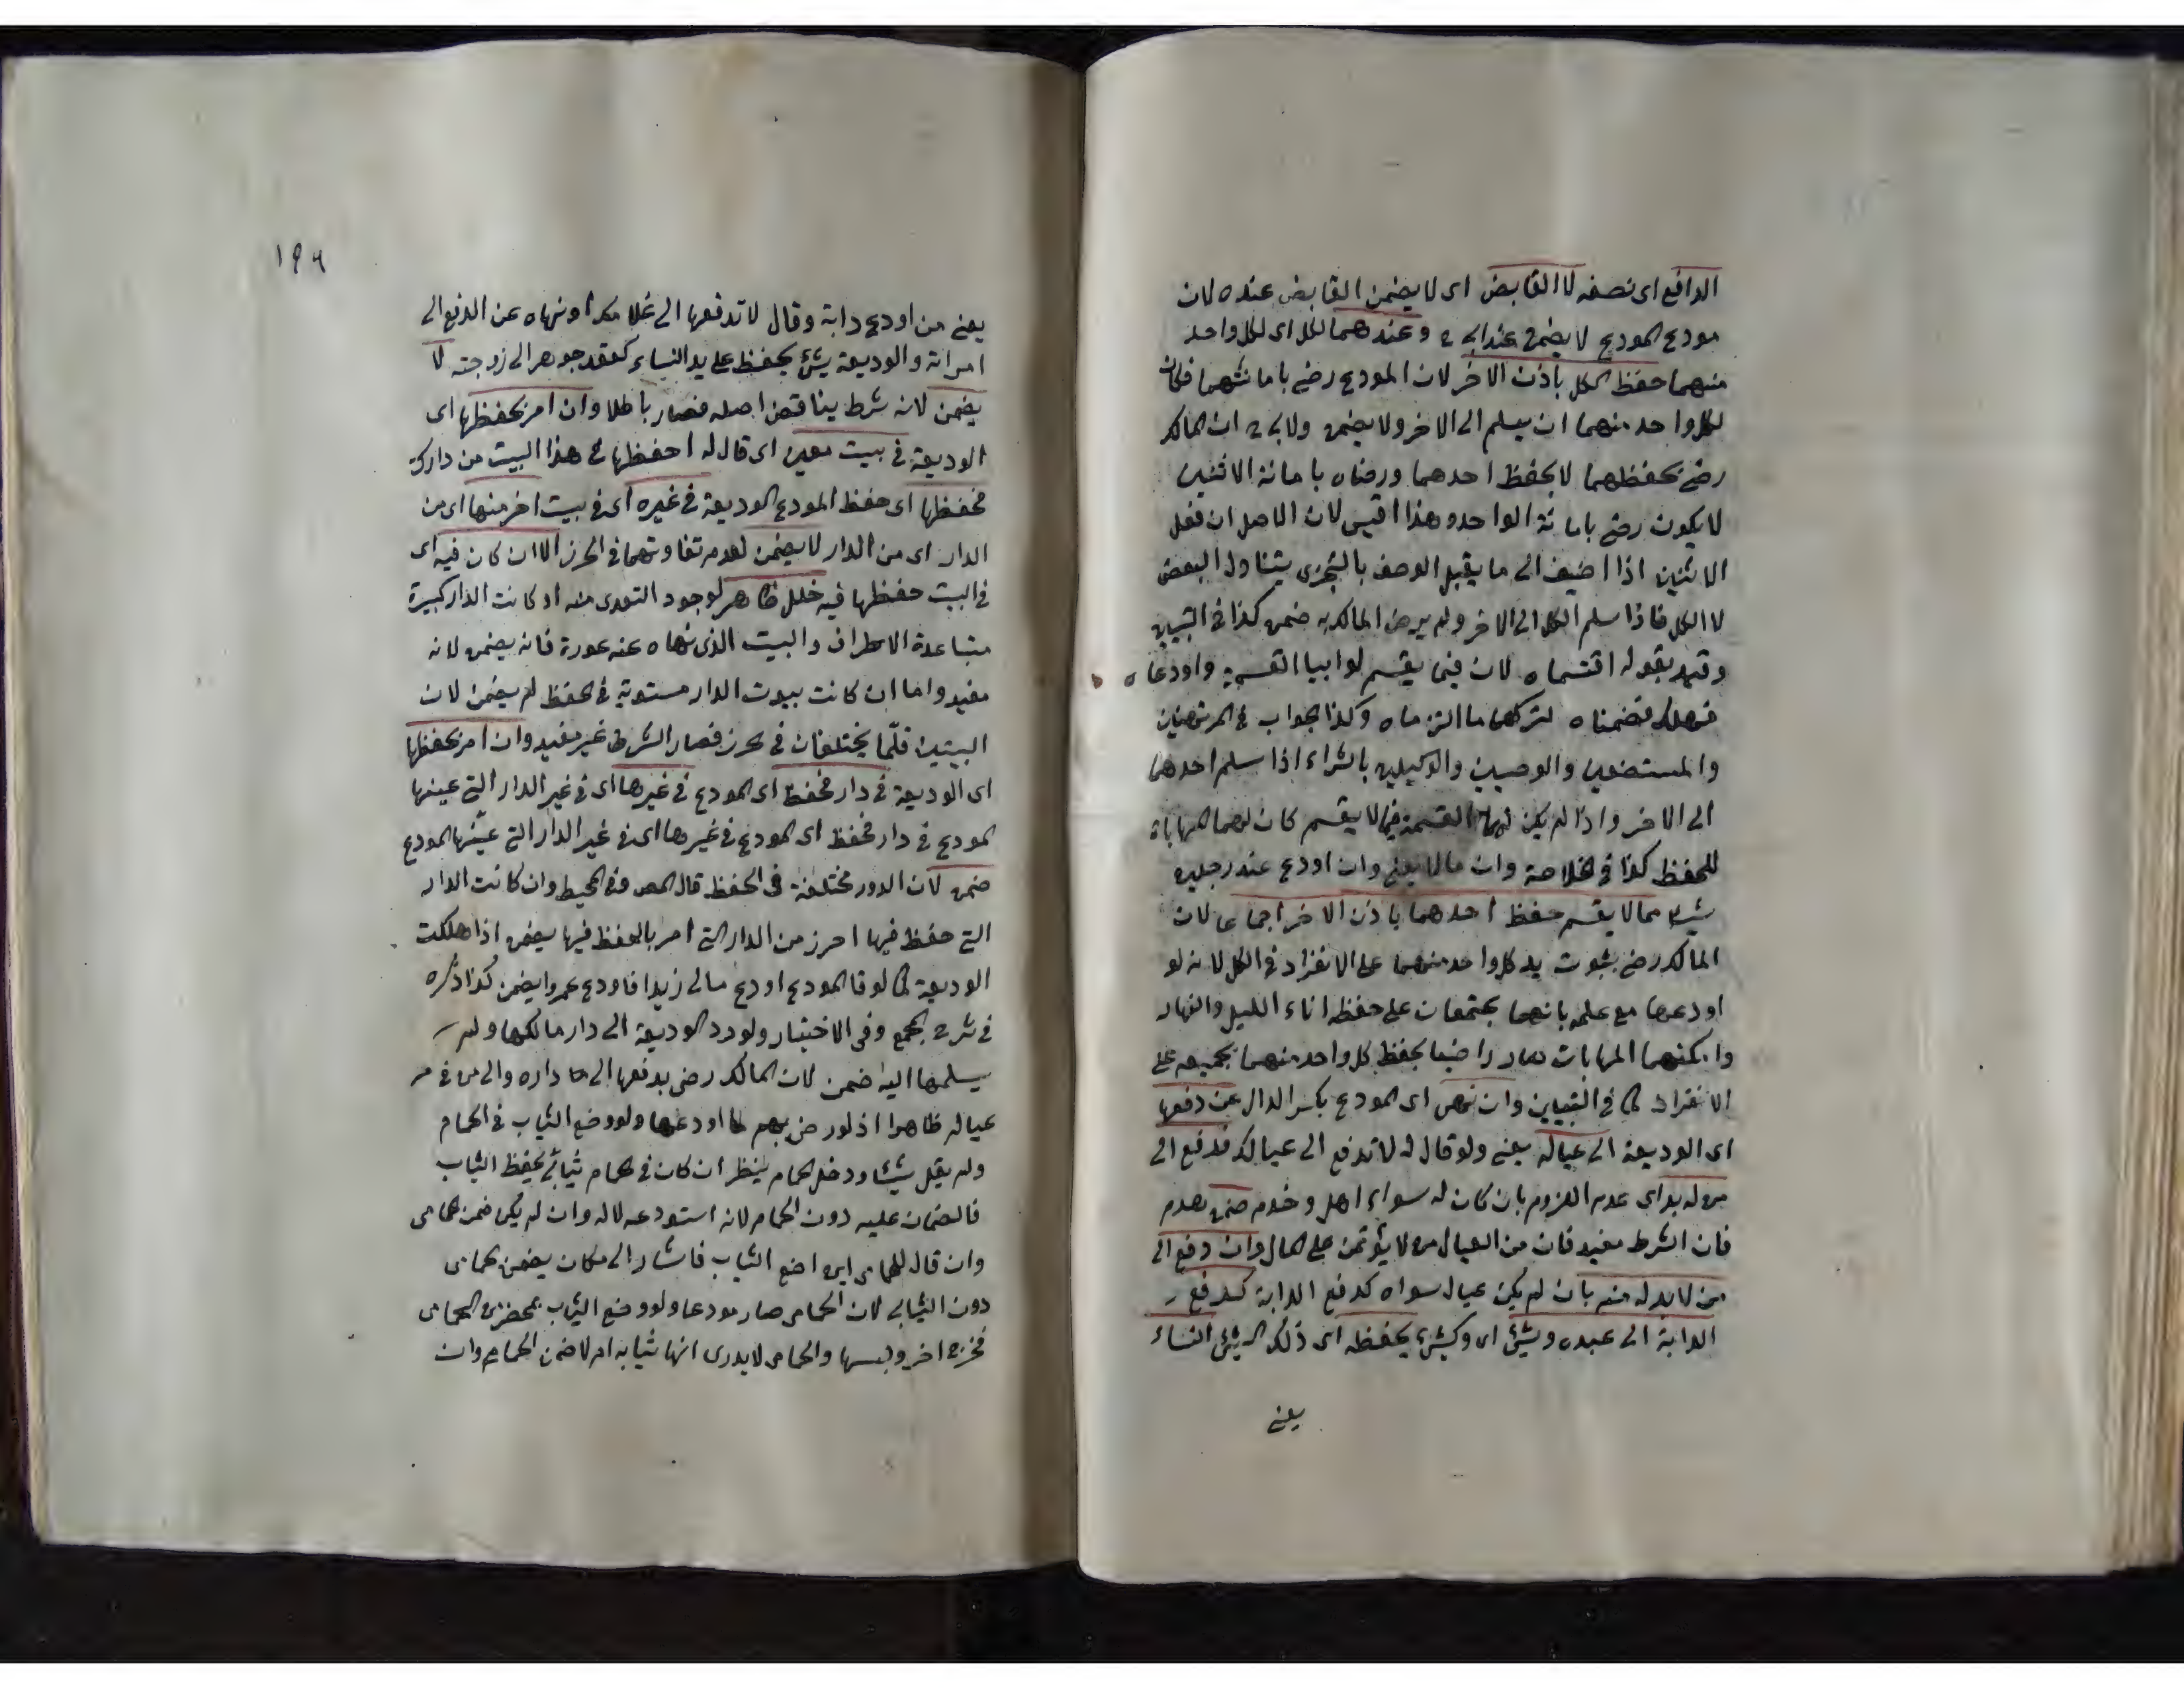 الدافع اى نصفه لا القابض اى لا يضمن القابض عنده لان
مودع المودع لا يضمن عند ابى ح وعندهما لكل اى لكل واحد
منهما حفظ الكل باذن الاخر لان المودع رضى بامانتهما فكان
لكل واحد منهما ان يسلم الى الاخر ولا يضمن ولابى ح ان المالك
رضى بحفظهما لا بحفظ احدهما ورضاه بامانة الاثنين
لا يكون رضى بامانة الواحد وهذا اقيس لان الاصل ان فعل
الاثنين اذا اضيف الى ما يقبل الوصف بالتجزى يتناول البعض
لا الكل فاذا سلم الكل الى الاخر ولم يرض المالك به ضمن كذا فى التبيين
وقيد بقوله اقتسماه لان فيما يقسم لو ابيا القسمة واودعاه
فهلك ضمناه لتركهما ما التزماه وكذا الجواب فى المرتهنين
والمستضعين والوصيين والوكيلين بالشراء اذا سلم احدهما
الى الاخر واذا لم يكن لهما القسمة فيما لا يقسم كان لهما المهاباة
للحفظ كذا فى الخلاصة وان مالا يعنى وان اودع عند رجلين
شيئا مما لا يقسم حفظ احدهما باذن الاخر اجماعا لان
المالك رضى بثبوت يد كل واحد منهما على الانفراد فى الكل لانه لو
اودعها مع علمه بانهما لا يجتمعان على حفظه اناء الليل والنهار
وامكنهما المهابات صار راضيا بحفظ كل واحد منهما بجميعه على
الانفراد كما فى التبيين وان نهى اى المودع بكسر الدال عن دفعها
اى الوديعة الى عياله يعنى ولو قال له لا تدفع الى عيالك فدفع الى
من له بد اى عدم اللزوم بان كان له سواه اهل وخدم ضمن بعدم
فان الشرط مفيد فان من العيال من لا يؤتمن على المال وان دفع الى
من لا بد له منه بان لم يكن عيال سواه كدفع الدابة كدفع
الدابة الى عبده وشئ اى وكشئ يحفظه اى ذلك الشئ النساء
يعنى
١٩٦
يعنى من اودع دابة وقال لا تدفعها الى غلامك او نهاه عن الدفع الى
امراته والوديعة شئ يحفظ على يد النساء كعقد جوهر الى زوجته لا
يضمن لانه شرط يناقض اصله فصار باطلا وان امر بحفظها اى
الوديعة فى بيت معين اى قال له احفظها فى هذا البيت من دارك
فحفظها اى حفظ المودع الوديعة فى غيره اى فى بيت اخر منها اى من
الدار اى من الدار لا يضمن لعدم تفاوتهما فى الحرز الا ان كان فيه اى
فى البيت حفظها فيه خلل ظاهر لوجود التعدى منه او كانت الدار كبيرة
متباعدة الاطراف والبيت الذى نهاه عنه عورة فانه يضمن لانه
مفيد واما ان كانت بيوت الدار مستوية فى الحفظ لم يضمن لان
البيتين قلّما يختلفان فى الحرز فصار الشرط غير مفيد وان امر بحفظها
اى الوديعة فى دار فحفظ اى المودع فى غيرها اى فى غير الدار التى عينها
المودع فى دار فحفظ اى المودع فى غيرها اى فى غير الدار التى عيّنها المودع
ضمن لان الدور مختلفة فى الحفظ قال المص فى المحيط وان كانت الدار
التى حفظ فيها احرز من الدار التى امر بالحفظ فيها يضمن اذا هلكت
الوديعة كما لو قال المودع اودع مالى زيدا فاودع عمروا يضمن كذا ذكره
فى شرح المجمع وفى الاختيار ولو رد الوديعة الى دار مالكها ولم
يسلمها اليه ضمن لان المالك رضى بدفعها الى داره والى من فى
عياله ظاهرا اذ لو رضى بهم لما اودعها ولو وضع الثياب فى الحمام
ولم يقل شيئا ودخل الحمام ينظر ان كان فى الحمام ثيابى يحفظ الثياب
فالضمان عليه دون الحمام لانه استودعه لا له وان لم يكن ضمن الحمامى
وان قال للحمامى اين اضع الثياب فاشار الى مكان يضمن الحمامى
دون الثيابى لان الحمامى صار مودعا ولو وضع الثياب بمحضر من الحمامى
فخرج اخر ولبسها والحمامى لا يدرى انها ثيابه ام لا ضمن الحمامى وان